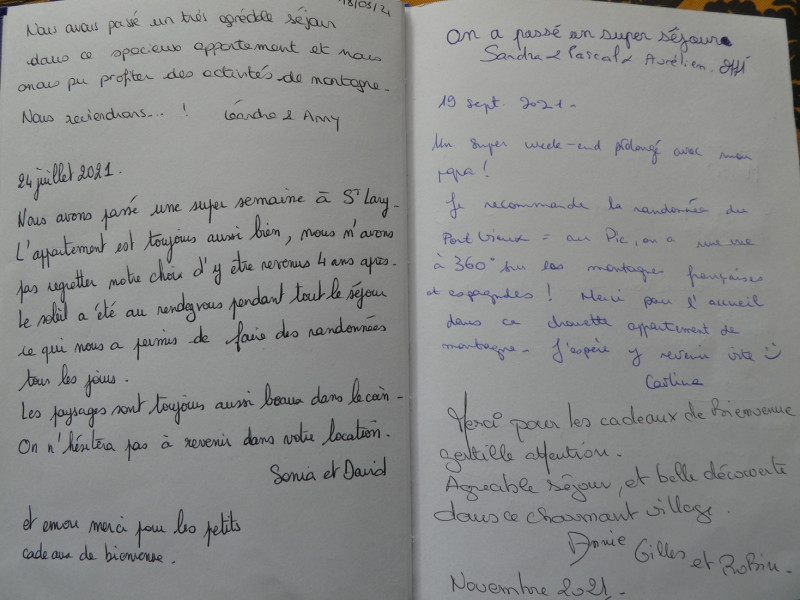 18/03/21
Nous avons passé un très agréable séjour
dans ce spacieux appartement et nous
avons pu profiter des activités de montagne.
Nous reviendrons... ! Léandre & Anny
24 juillet 2021.
Nous avons passé une super semaine à St Lary.
L'appartement est toujours aussi bien, nous n'avons
pas regretter notre choix d'y être revenus 4 ans après.
Le soleil a été au rendez vous pendant tout le séjour
ce qui nous a permis de faire des randonnées
tous les jours.
Les paysages sont toujours aussi beaux dans le coin.
On n'hésitera pas à revenir dans votre location.
Sonia et David
et encore merci pour les petits
cadeaux de bienvenue.
On a passé un super séjour
Sandra & Pascal & Aurélien.
19 sept. 2021.
Un super week-end prolongé avec mon
papa !
Je recommande la randonnée du
Port Vieux = au Pic, on a une vue
à 360° sur les montagnes françaises
et espagnoles ! Merci pour l'accueil
dans ce chouette appartement de
montagne. J'espère y revenir vite
Merci pour les cadeaux de bienvenue
gentille attention.
Agreable séjour, et belle découverte
dans ce charmant village.
Annie Gilles et Robin.
Novembre 2021.